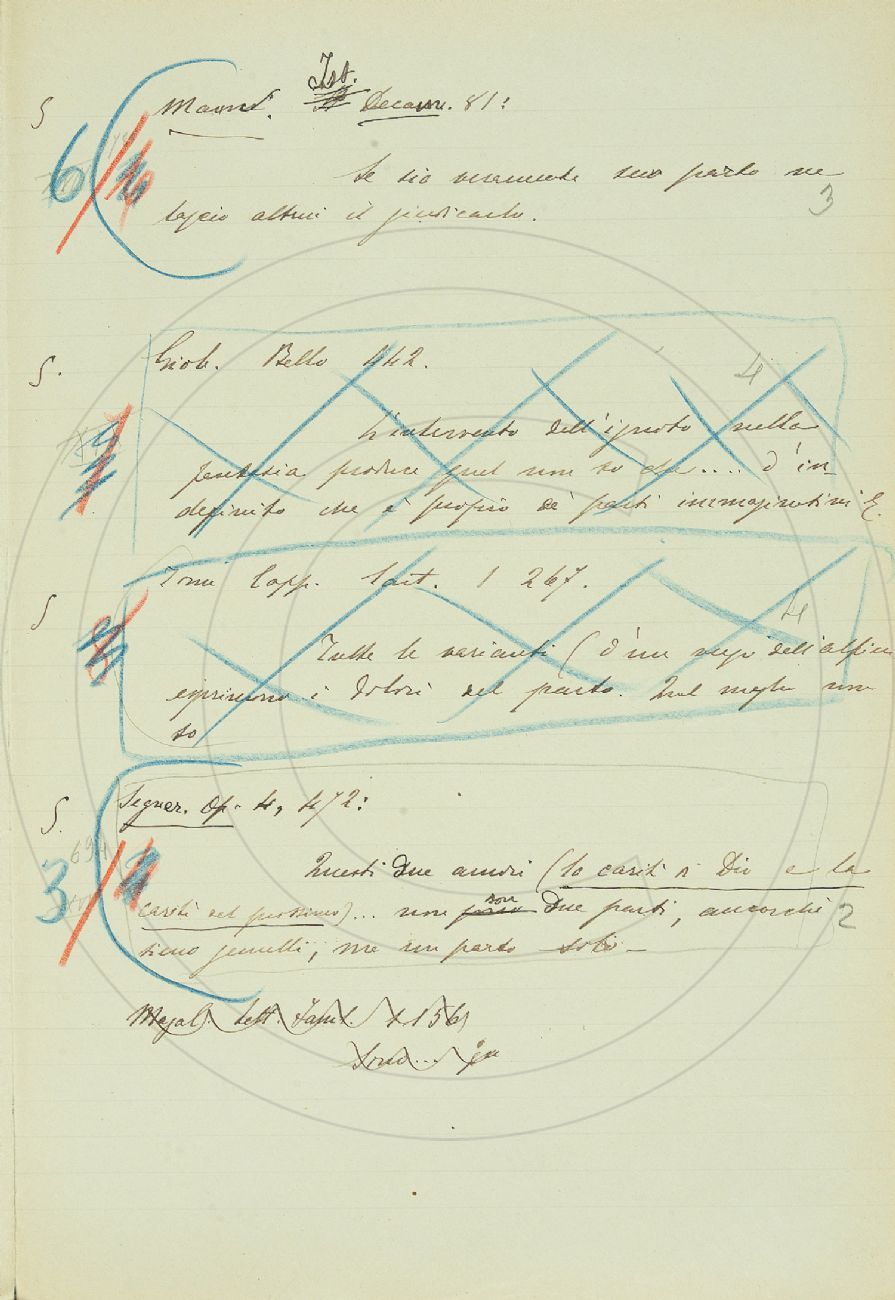 S
Mann. Ist. Decam. 81:
6
Se sia veramente suo parto ne
lascio altrui il giudicarlo.
3
S.
Giob. Bello 442.
4
L'intervento dell'ignoto nella
fantasia produce quel non so che.... d'in-
definito che è proprio de' parti immaginativi
S
Tom. Capp. Sant. 1 267.
4
Tutte le varianti (d'un
esprimono i dolori del parto. Qual meglio non
so
S.
Segner. Op. 4, 472:
3
Questi due amori (la carità di Dio e la
carità del prossimo)... non son due parti, ancorchè
2
sieno gemelli, ma un parto solo
Magal. Lett. Fam.